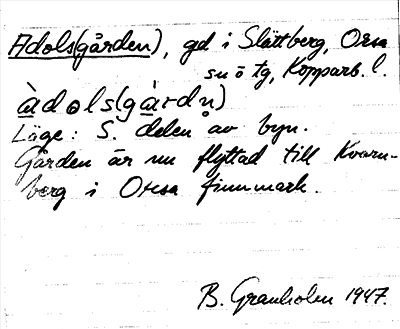 Adols(gården), gd i Slättberg, Orsa
sn ö tg, Kopparb. l.
àdɵls(gàrdn)
Läge: S. delen av byn.
Gården är nu flyttad till Kvarn-
berg i Orsa finnmark.
B. Granholm 1947.